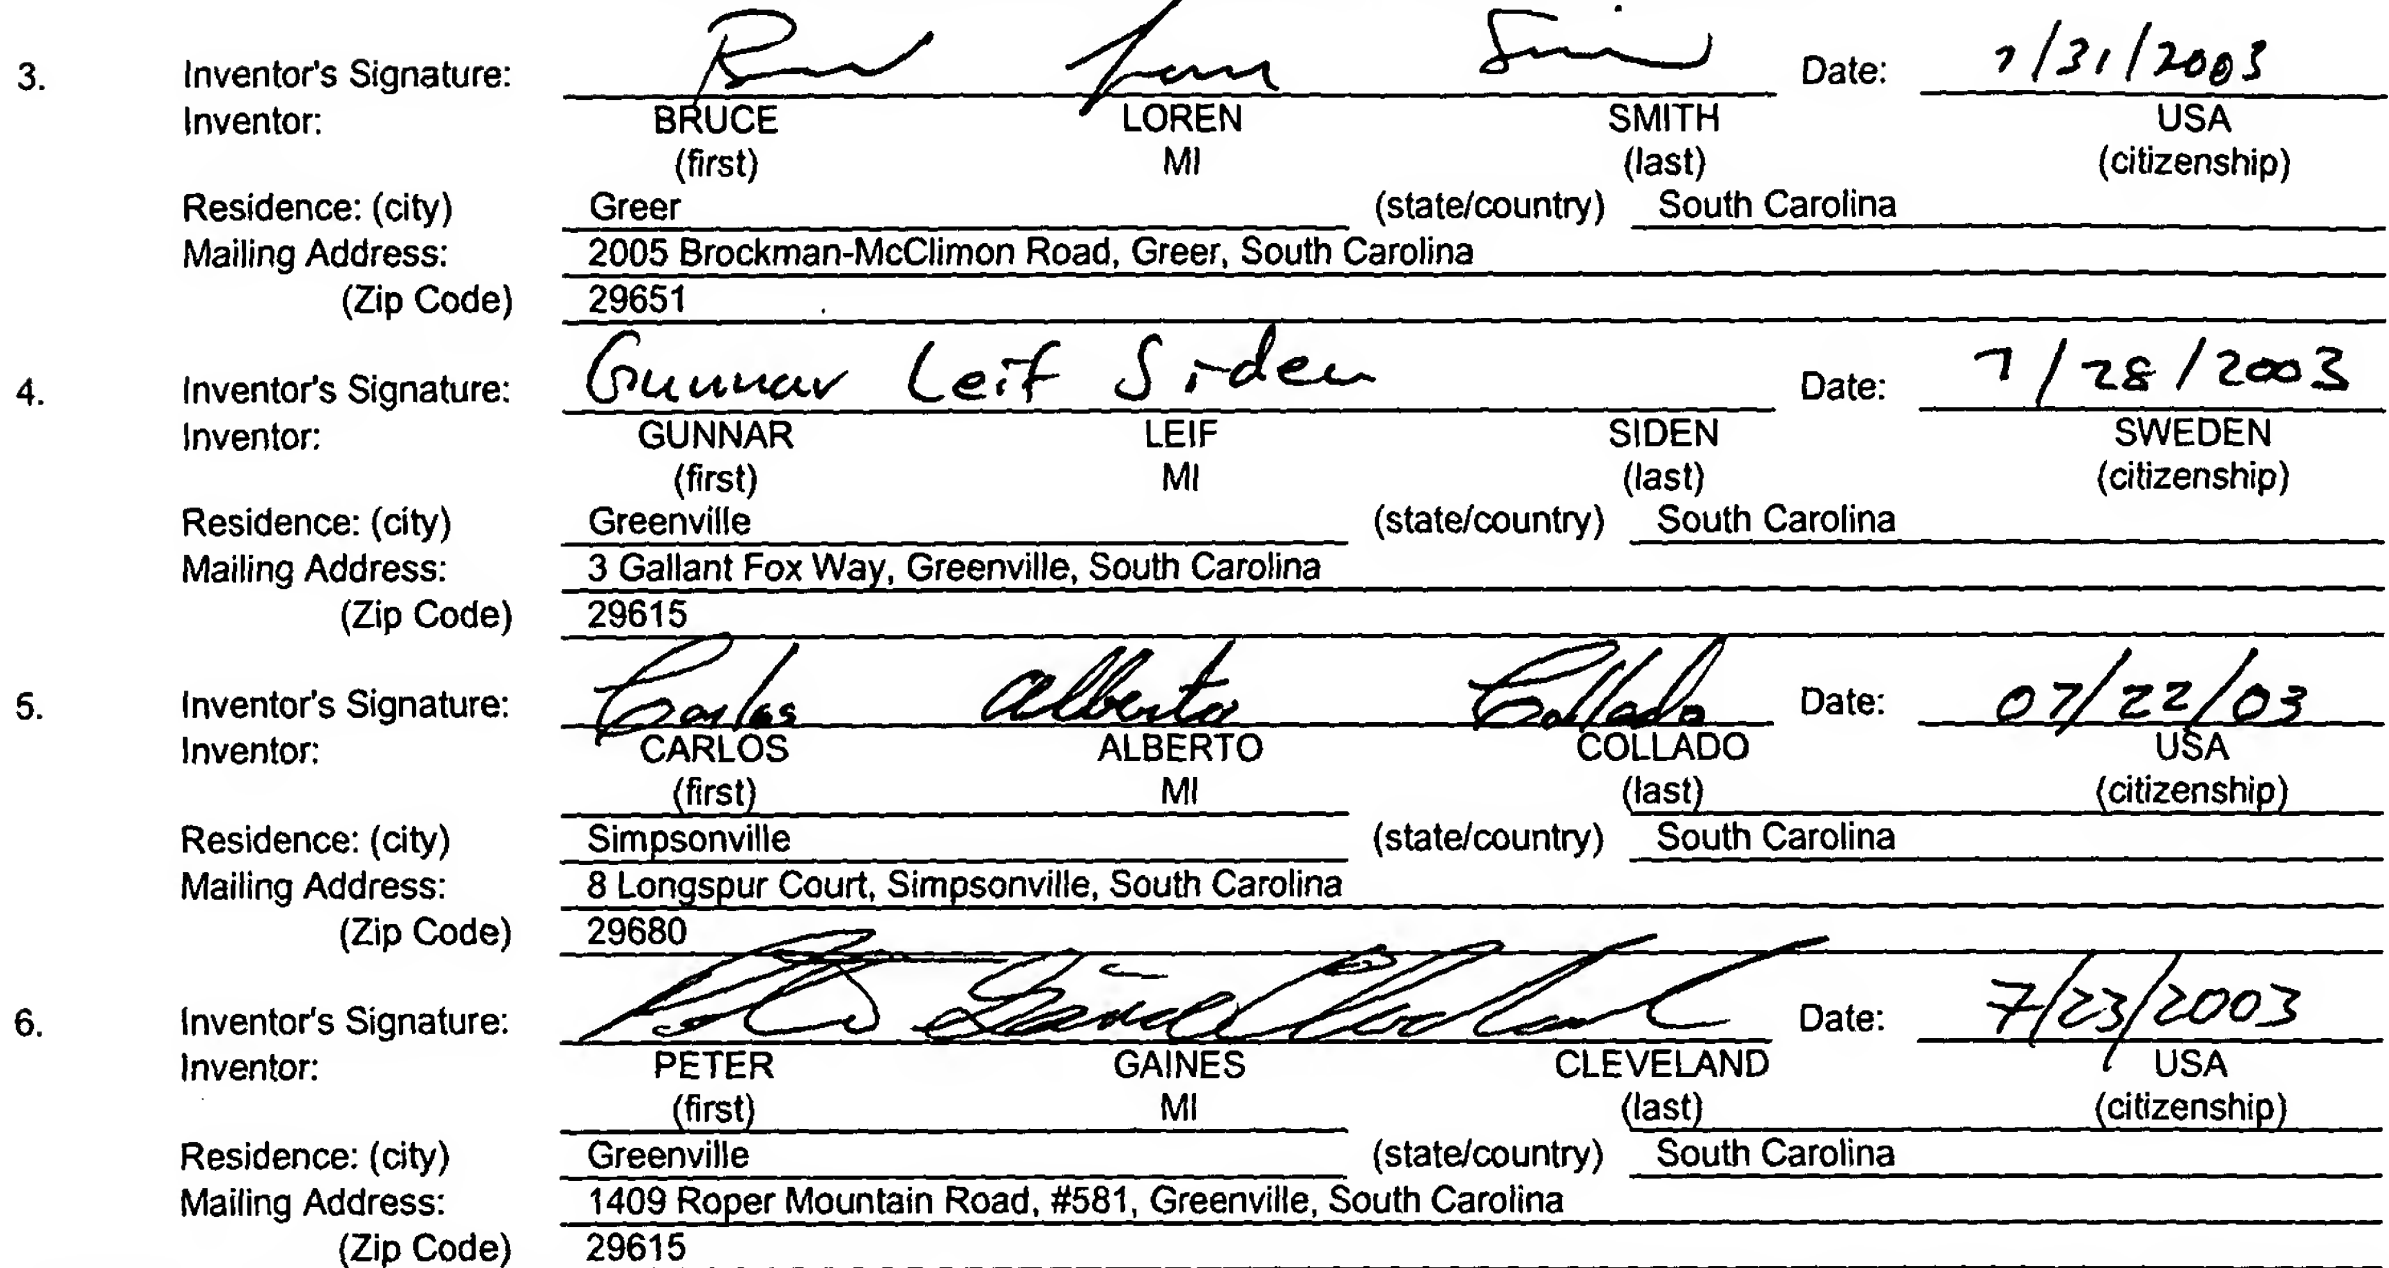 3. Inventor's Signature: Bruce Loren Smith Date: 7/31/2003
Inventor: BRUCE LOREN SMITH USA
(first) MI (last) (citizenship)
Residence: (city) Greer (state/country) South Carolina
Mailing Address: 2005 Brockman-McClimon Road, Greer, South Carolina
(Zip Code) 29651
4. Inventor's Signature: Gunnar Leif Siden Date: 7/28/2003
Inventor: GUNNAR LEIF SIDEN SWEDEN
(first) MI (last) (citizenship)
Residence: (city) Greenville (state/country) South Carolina
Mailing Address: 3 Gallant Fox Way, Greenville, South Carolina
(Zip Code) 29615
5. Inventor's Signature: Carlos Alberto Collado Date: 07/22/03
Inventor: CARLOS ALBERTO COLLADO USA
(first) MI (last) (citizenship)
Residence: (city) Simpsonville (state/country) South Carolina
Mailing Address: 8 Longspur Court, Simpsonville, South Carolina
(Zip Code) 29680
6. Inventor's Signature: Peter Gaines Cleveland Date: 7/23/2003
Inventor: PETER GAINES CLEVELAND USA
(first) MI (last) (citizenship)
Residence: (city) Greenville (state/country) South Carolina
Mailing Address: 1409 Roper Mountain Road, #581, Greenville, South Carolina
(Zip Code) 29615